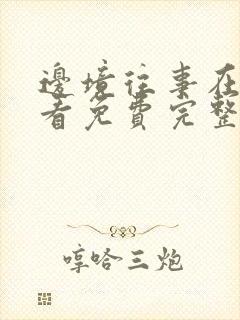 邊境往事在
看免費完整
哼哈三炮